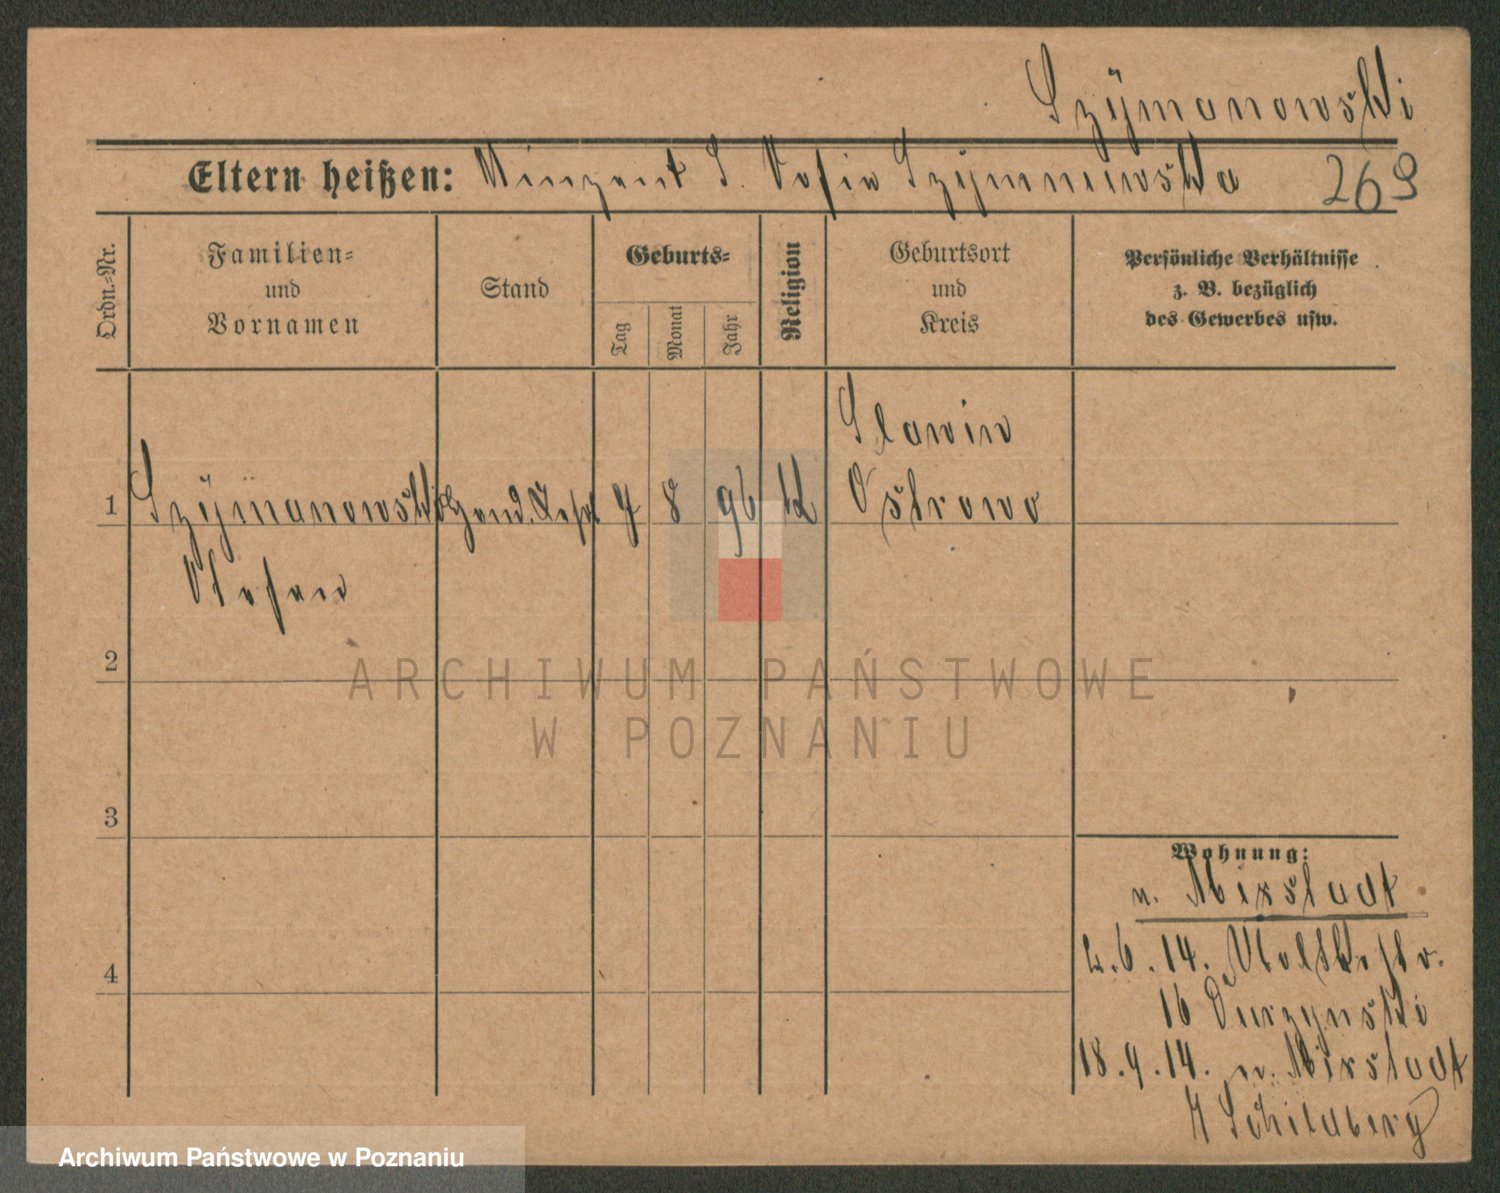 Szÿmanowski
Eltern heißen: Vinzent S. Sofia Szÿmanowska 269
Ordn.-Nr.
Familien-
und
Vornamen
Stand
Geburts-
Tag
Monat
Jahr
Religion
Geburtsort
und
Kreis
Persönliche Verhältnisse
z. B. bezüglich
des Gewerbes usw.
1 Szÿmanowski 8 96 K
Slawin
Ostrowo
Stefan
2
3
4
ARCHIWUM PAŃSTWOWE
W POZNANIU
Wohnung:
n. Mixstadt
2.6.14.
16
18.9.14. n. Mixstadt
Schildberg
Archiwum Państwowe w Poznaniu